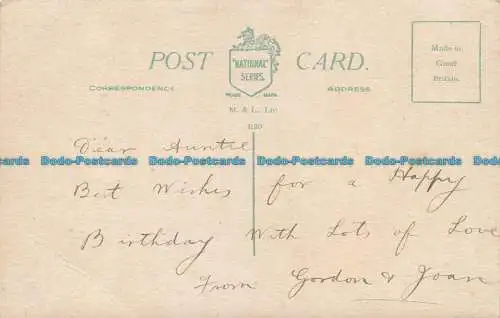 POST CARD.
"NATIONAL"
SERIES.
TRADE MARK
CORRESPONDENCE
ADDRESS
M. & L., Ltd
Made in
Great
Britain.
Dear Auntie
Dodo-Postcards Dodo-Postcards Dodo-Postcards Dodo-Postcards
Best Wishes for a Happy
Birthday With Lots of Love
From Gordon & Joan